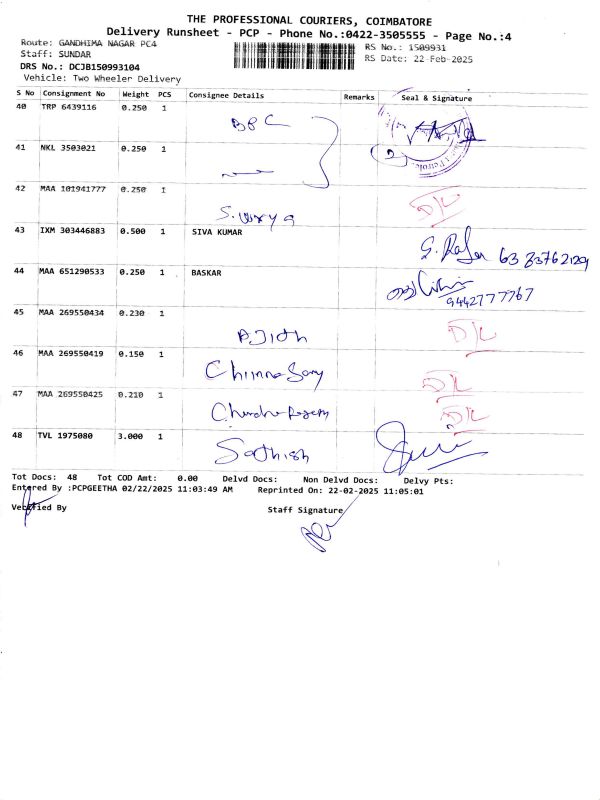 THE PROFESSIONAL COURIERS, COIMBATORE
Delivery Runsheet - PCP - Phone No.:0422-3505555 - Page No.:4
Route: GANDHIMA NAGAR PC4
RS No.: 1509931
Staff: SUNDAR
RS Date: 22-Feb-2025
DRS No.: DCJB150993104
Vehicle: Two Wheeler Delivery
S No Consignment No Weight PCS Consignee Details Remarks Seal & Signature
40 TRP 6439116 0.250 1 BPC
41 NKL 3503021 0.250 1
42 MAA 101941777 0.250 1 D/L
43 IXM 303446883 0.500 1 SIVA KUMAR
44 MAA 651290533 0.250 1 BASKAR
9442777767
45 MAA 269550434 0.230 1 AJith D/L
46 MAA 269550419 0.150 1 D/L
47 MAA 269550425 0.210 1 D/L
48 TVL 1975080 3.000 1 Sathish
Tot Docs: 48 Tot COD Amt: 0.00 Delvd Docs: Non Delvd Docs: Delvy Pts:
Entered By :PCPGEETHA 02/22/2025 11:03:49 AM Reprinted On: 22-02-2025 11:05:01
Verified By Staff Signature